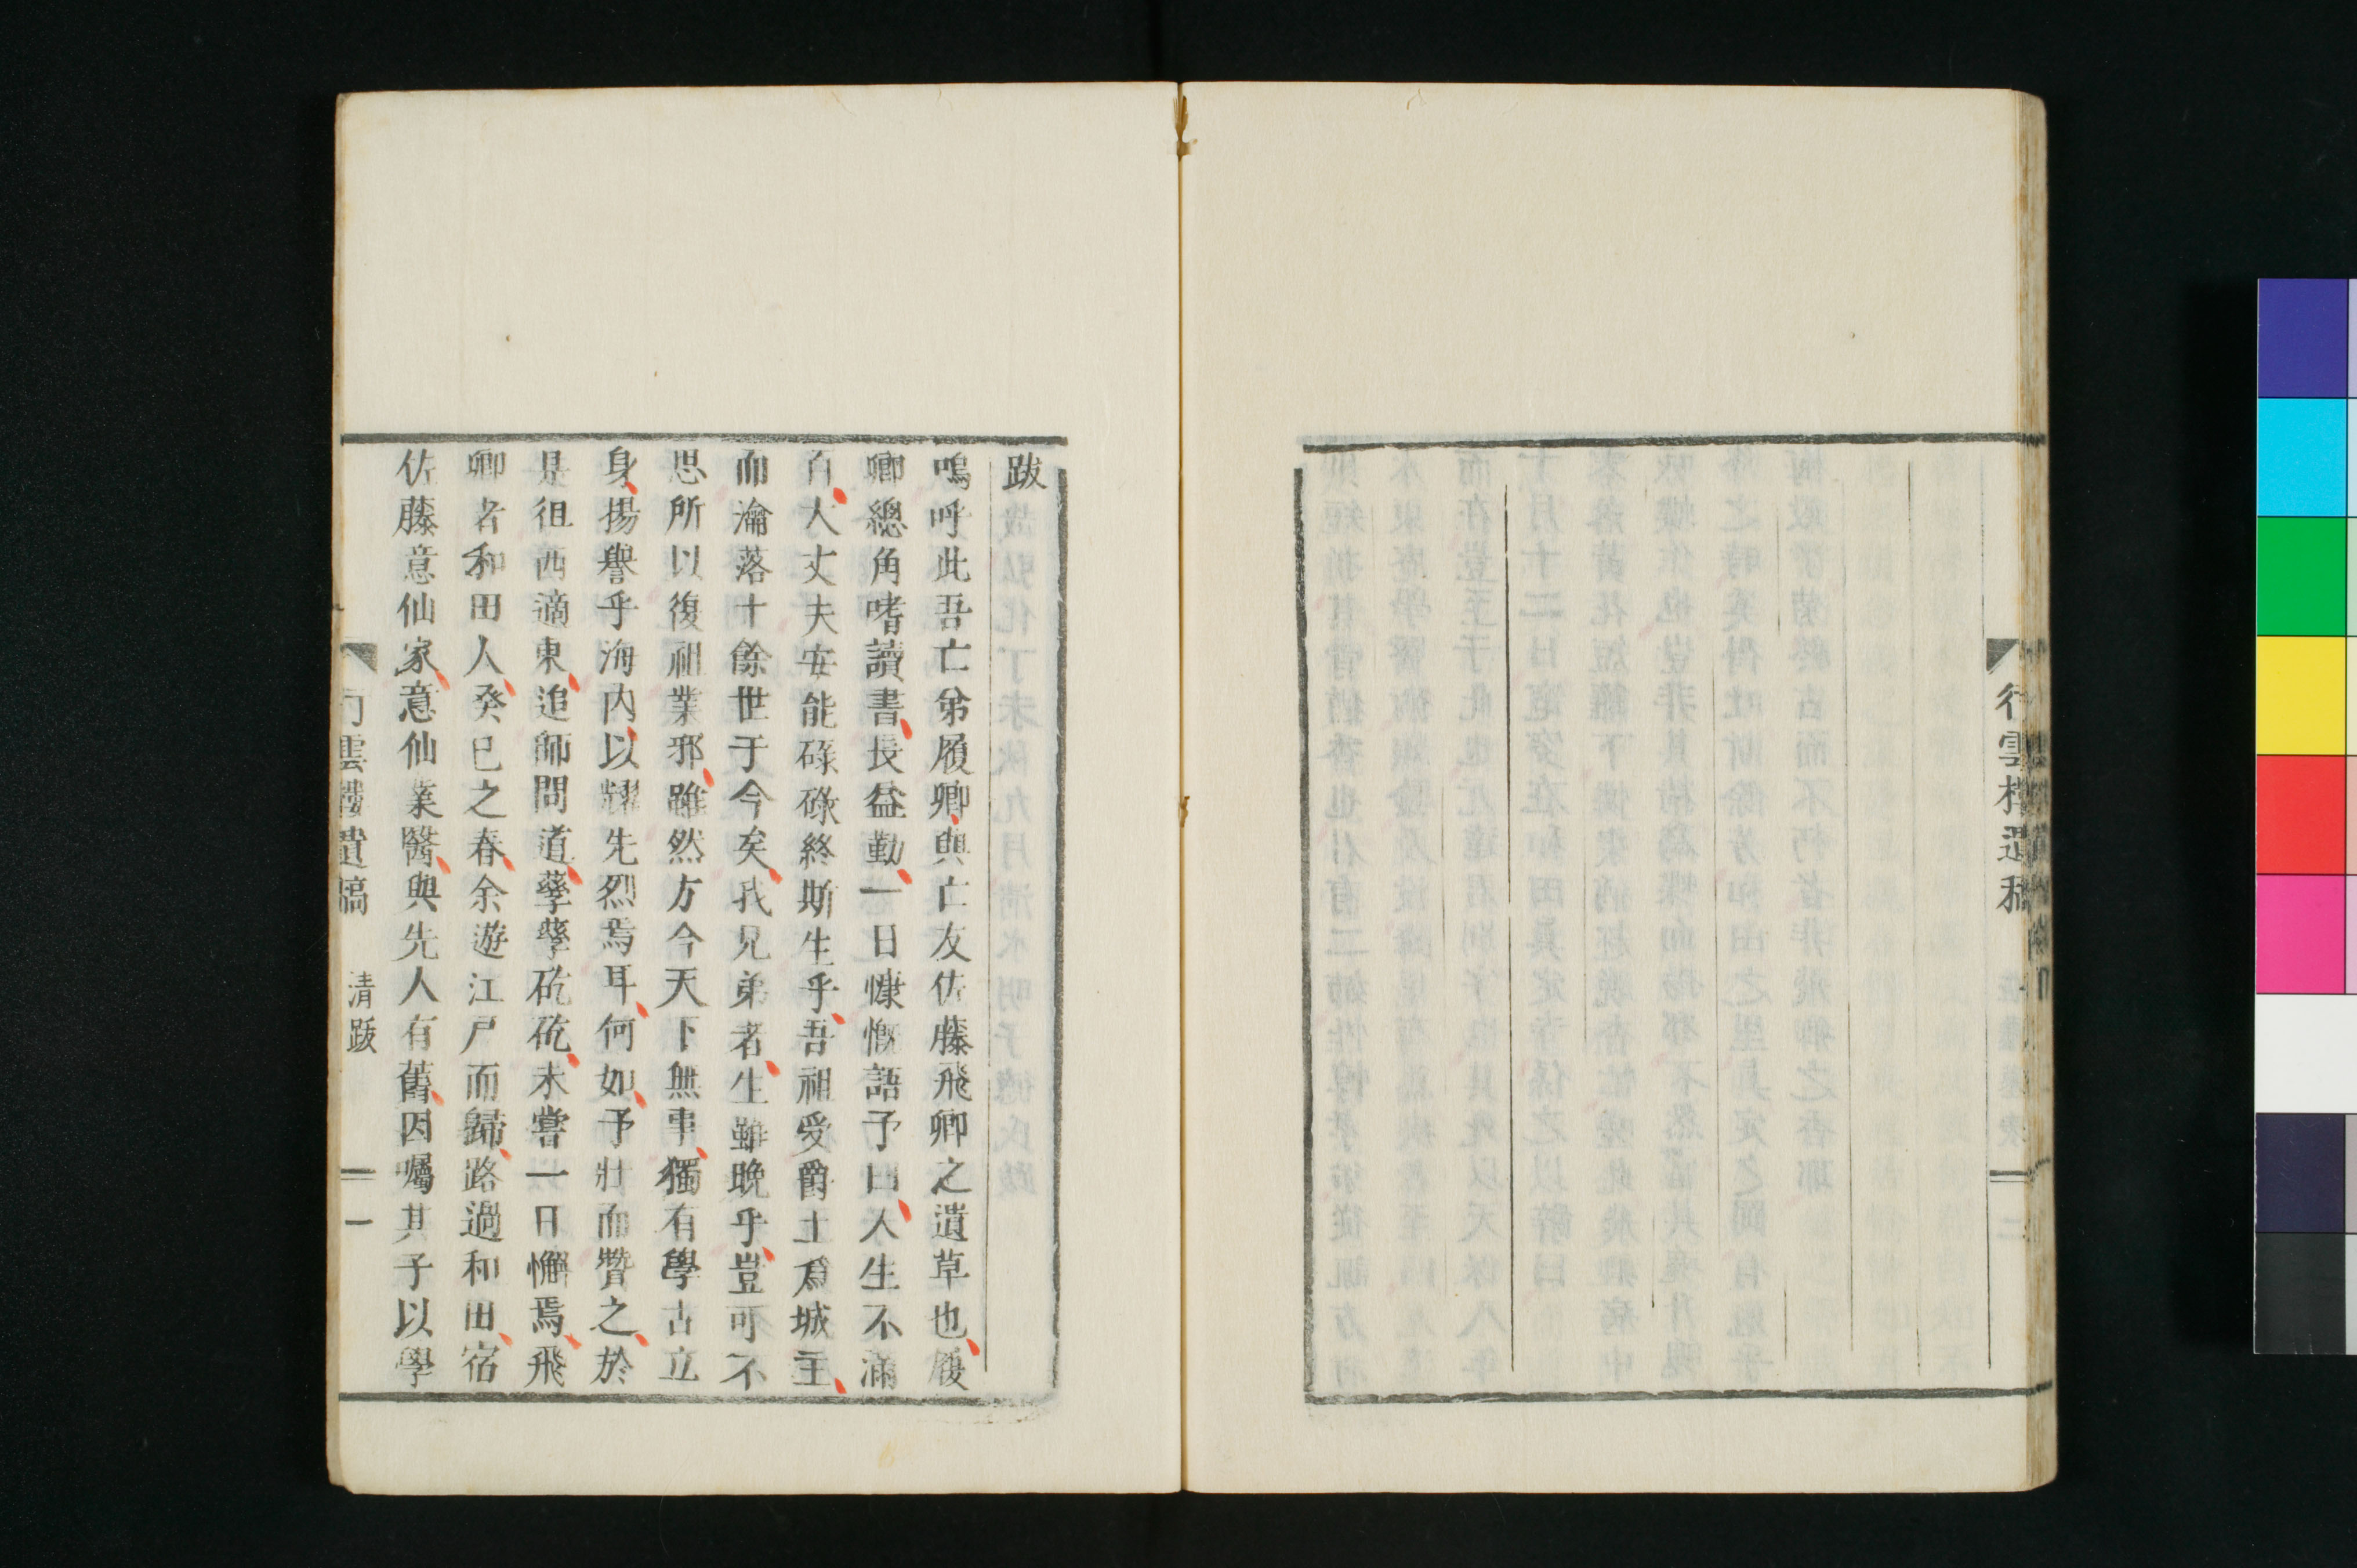 行雲樓遺稿
二
跋
嗚呼此吾亡弟履卿與亡友佐藤飛卿之遺草也履
卿總角嗜讀書長益勤一日慷慨語予曰人生不滿
百人丈夫安能碌碌終斯生乎吾祖受爵土爲城主
而淪落十餘世于今矣我兄弟者生雖晚乎豈可不
思所以復祖業邪雖然方今天下無事獨有學古立
身揚譽乎海内以耀先烈焉耳何如予壯而贊之於
是徂西適東追師問道孳孳矻矻未嘗一日懈焉飛
卿者和田人癸巳之春余遊江戸而歸路過和田宿
佐藤意仙家意仙業醫與先人有舊因囑其子以學
行雲樓遺稿
清跋
一